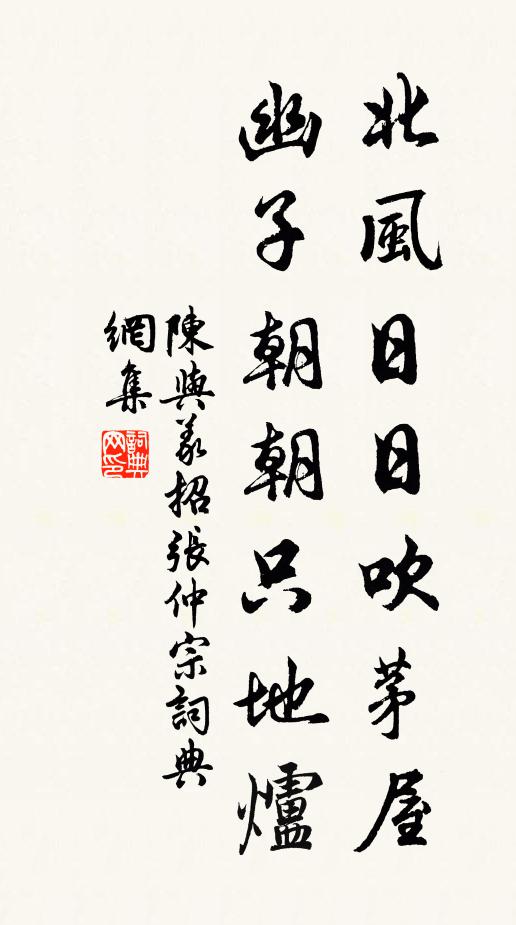 北風日日吹茅屋
幽子朝朝只地爐
陳與義招張仲宗詞典
網集
詞典
网印